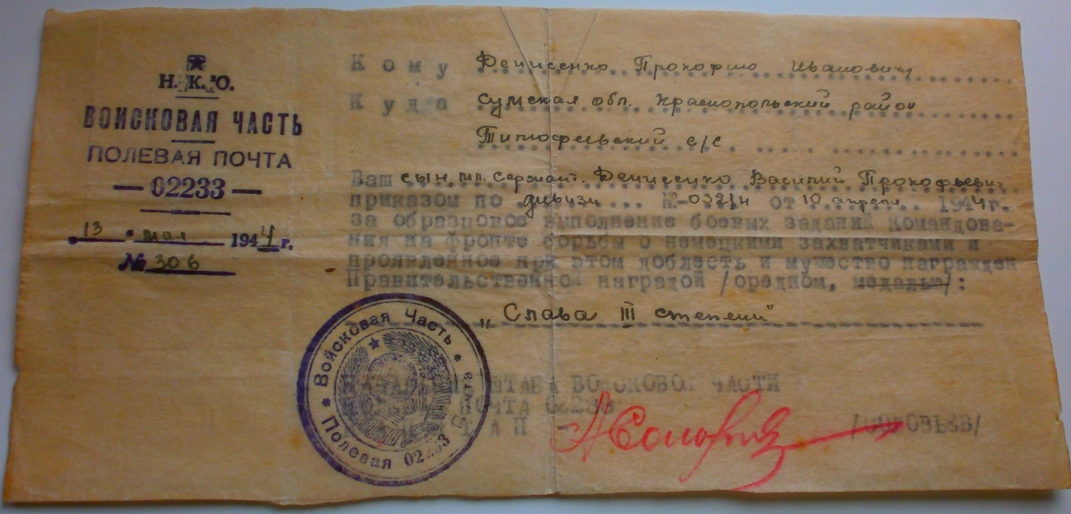 Н.К.О.
ВОИСКОВАЯ ЧАСТЬ
ПОЛЕВАЯ ПОЧТА
— 02233 —
13 " мая 1944 г.
№ 306
Кому Денисенко Прокофию Ивановичу
Куда Сумская обл. Краснопольский район
Тимофеевский с/с.
Ваш сын мл. сержант. Денисенко Василий Прокофьевич
приказом по дивизи № 032/н от 10 апреля 1944г.
за образцовое выполнение боевых заданий командова-
ния на фронте борьбы с немецкими захватчиками и
проявленное при этом доблесть и мужество награжден
Правительственной наградой /оредном, медалью/:
„Слава III степени"
ШТАБА ВОИСКОВОЙ ЧАСТИ
ПОЧТА 02233
Войсковая Часть
Полевая Почта 02233